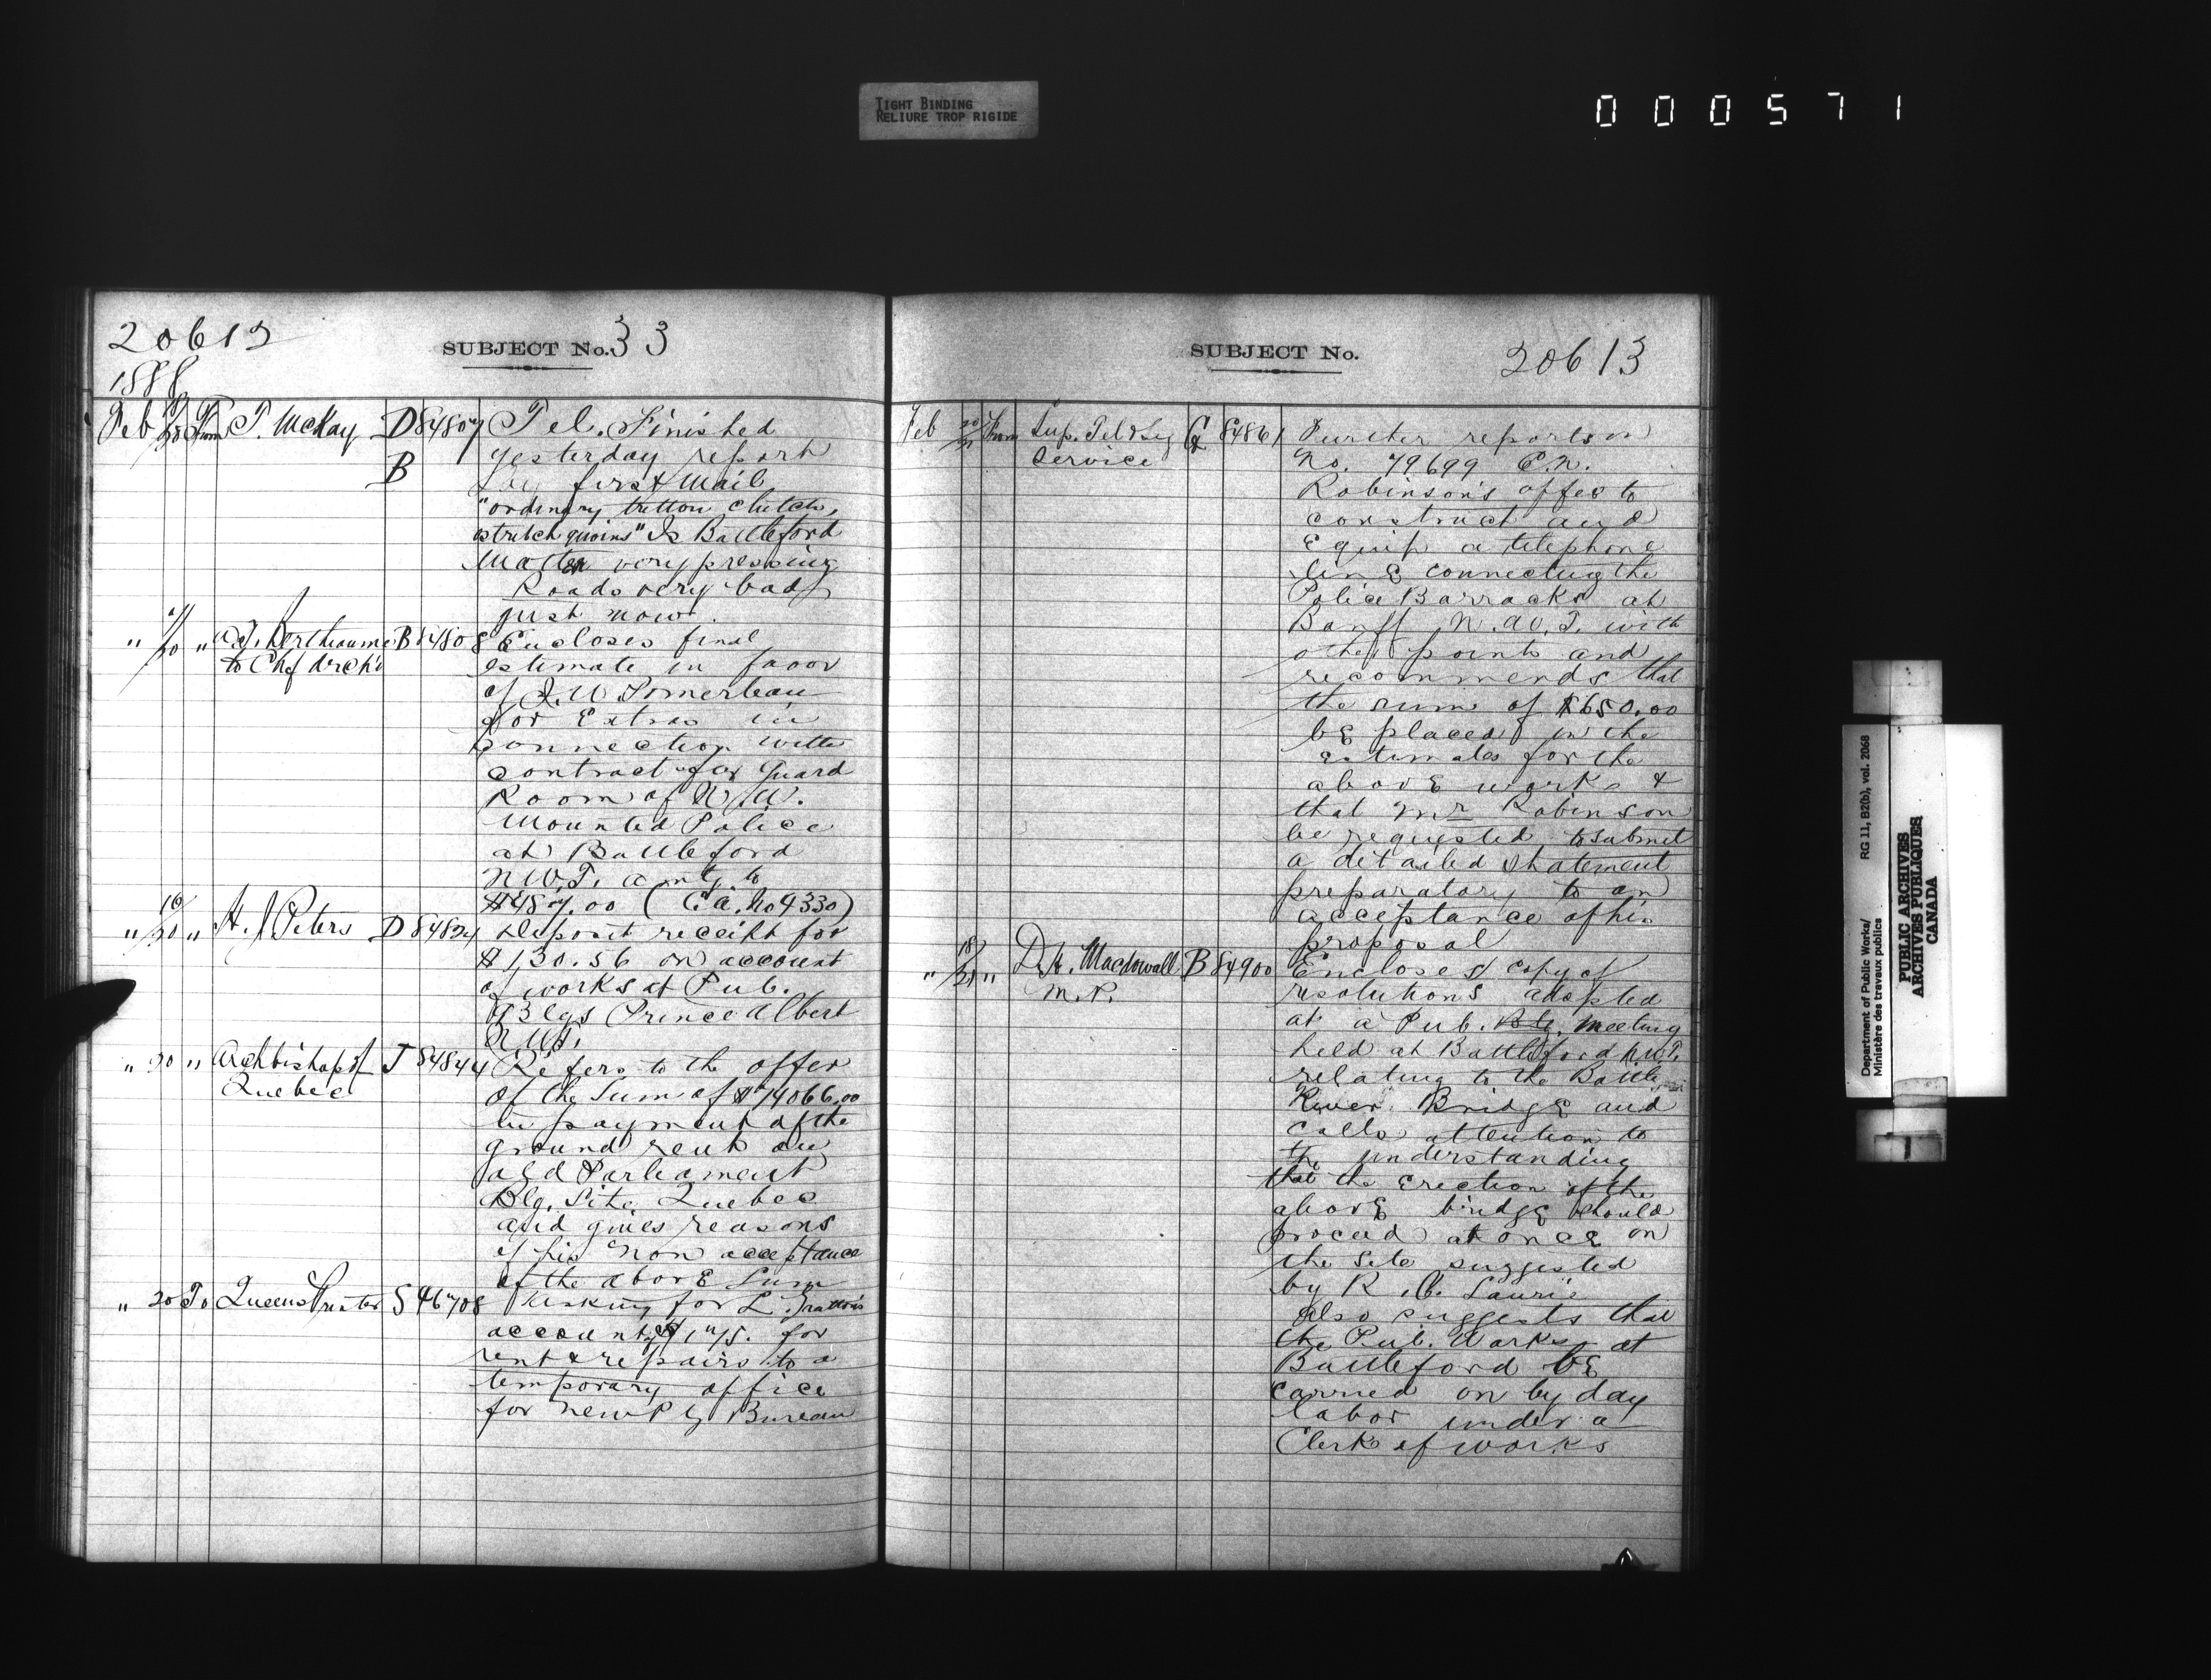 TIGHT BINDING
RELIURE TROP RIGIDE
000571
20612
SUBJECT No. 33
1888
Feb 20 From T. McKay D 84807 Tel. Finished
B yesterday report
by first Mail
"ordinary button clutch,
stretch quoins" Is Battleford
Matter very pressing
Roads very bad
just now.
" /20 " to Chf Archt B 84808 Encloses final
estimate in favor
of J. W
for Extras in
connection with
contract for Guard
Room of N.W.
Mounted Police
at Battleford
N.W.T. amtg. to
$487.00 (C.A. No 4330)
" 16/20 " H. J Peters D 84824 Deposit receipt for
$130.56 on account
of works at Pub.
Blgs Prince Albert
N.W.T.
" 20 " Archbishop of J 84844 Refers to the offer
Quebec of the Sum of $74066.00
in payment of the
ground rent on
old Parliament
Blg. Site Quebec
and gives reasons
of his non acceptance
of the above Sum
" 20 To Queens Printer S 46708 Asking for L. Gratton's
account of $175. for
rent & repairs to a
temporary office
for new Ptg Bureau
SUBJECT No.
20613
Feb 20/21 From Sup. Tel & Sig G 84861 Further reports on
Service No. 79699 C.N.
Robinson's offer to
construct and
Equip a telephone
line connecting the
Police Barracks at
Banff N.W.T. with
other points and
recommends that
the sum of $650.00
be placed in the
estimates for the
above works &
that Mr Robinson
be requested to submit
a detailed statement
preparatory to an
acceptance of his
proposal
" 18/21 " D. H. Macdowall B 84900 Encloses copy of
M.P. resolutions adopted
at a Pub. Blg. Meeting
held at Battleford N.W.T.
relating to the Battle
River Bridge and
calls attention to
the understanding
that the Erection of the
above bridge should
proceed at once on
the Site suggested
by R. C. Laurie
also suggests that
the Pub. Works at
Battleford be
carried on by day
labor under a
Clerk of works
Department of Public Works/
Ministère des travaux publics
RG 11, B2(b), vol. 2068
PUBLIC ARCHIVES
ARCHIVES PUBLIQUES
CANADA